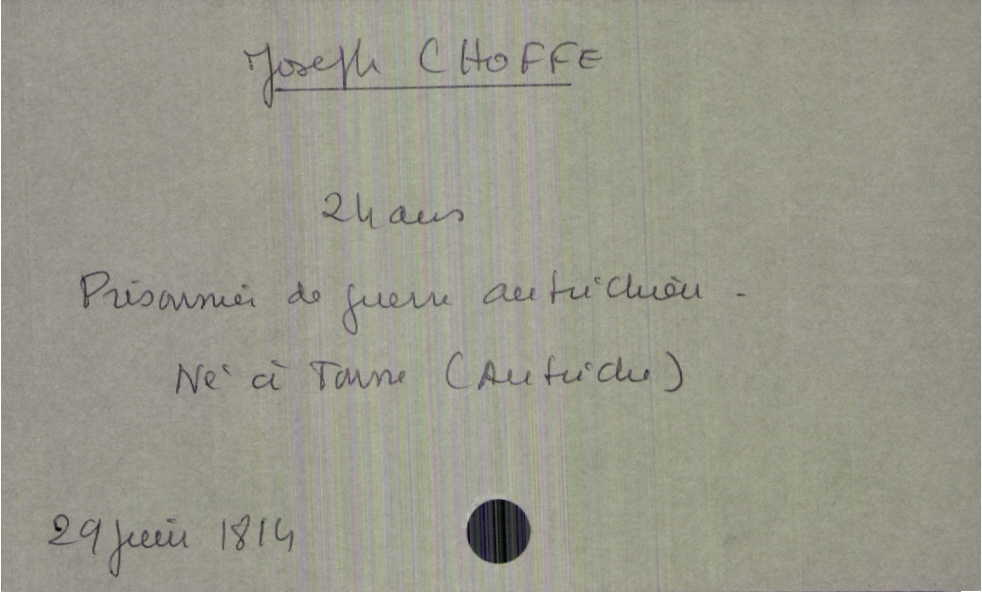 Joseph CHOFFE
24 ans
Prisonnier de guerre autrichien -
Né à (Autriche)
29 juin 1814